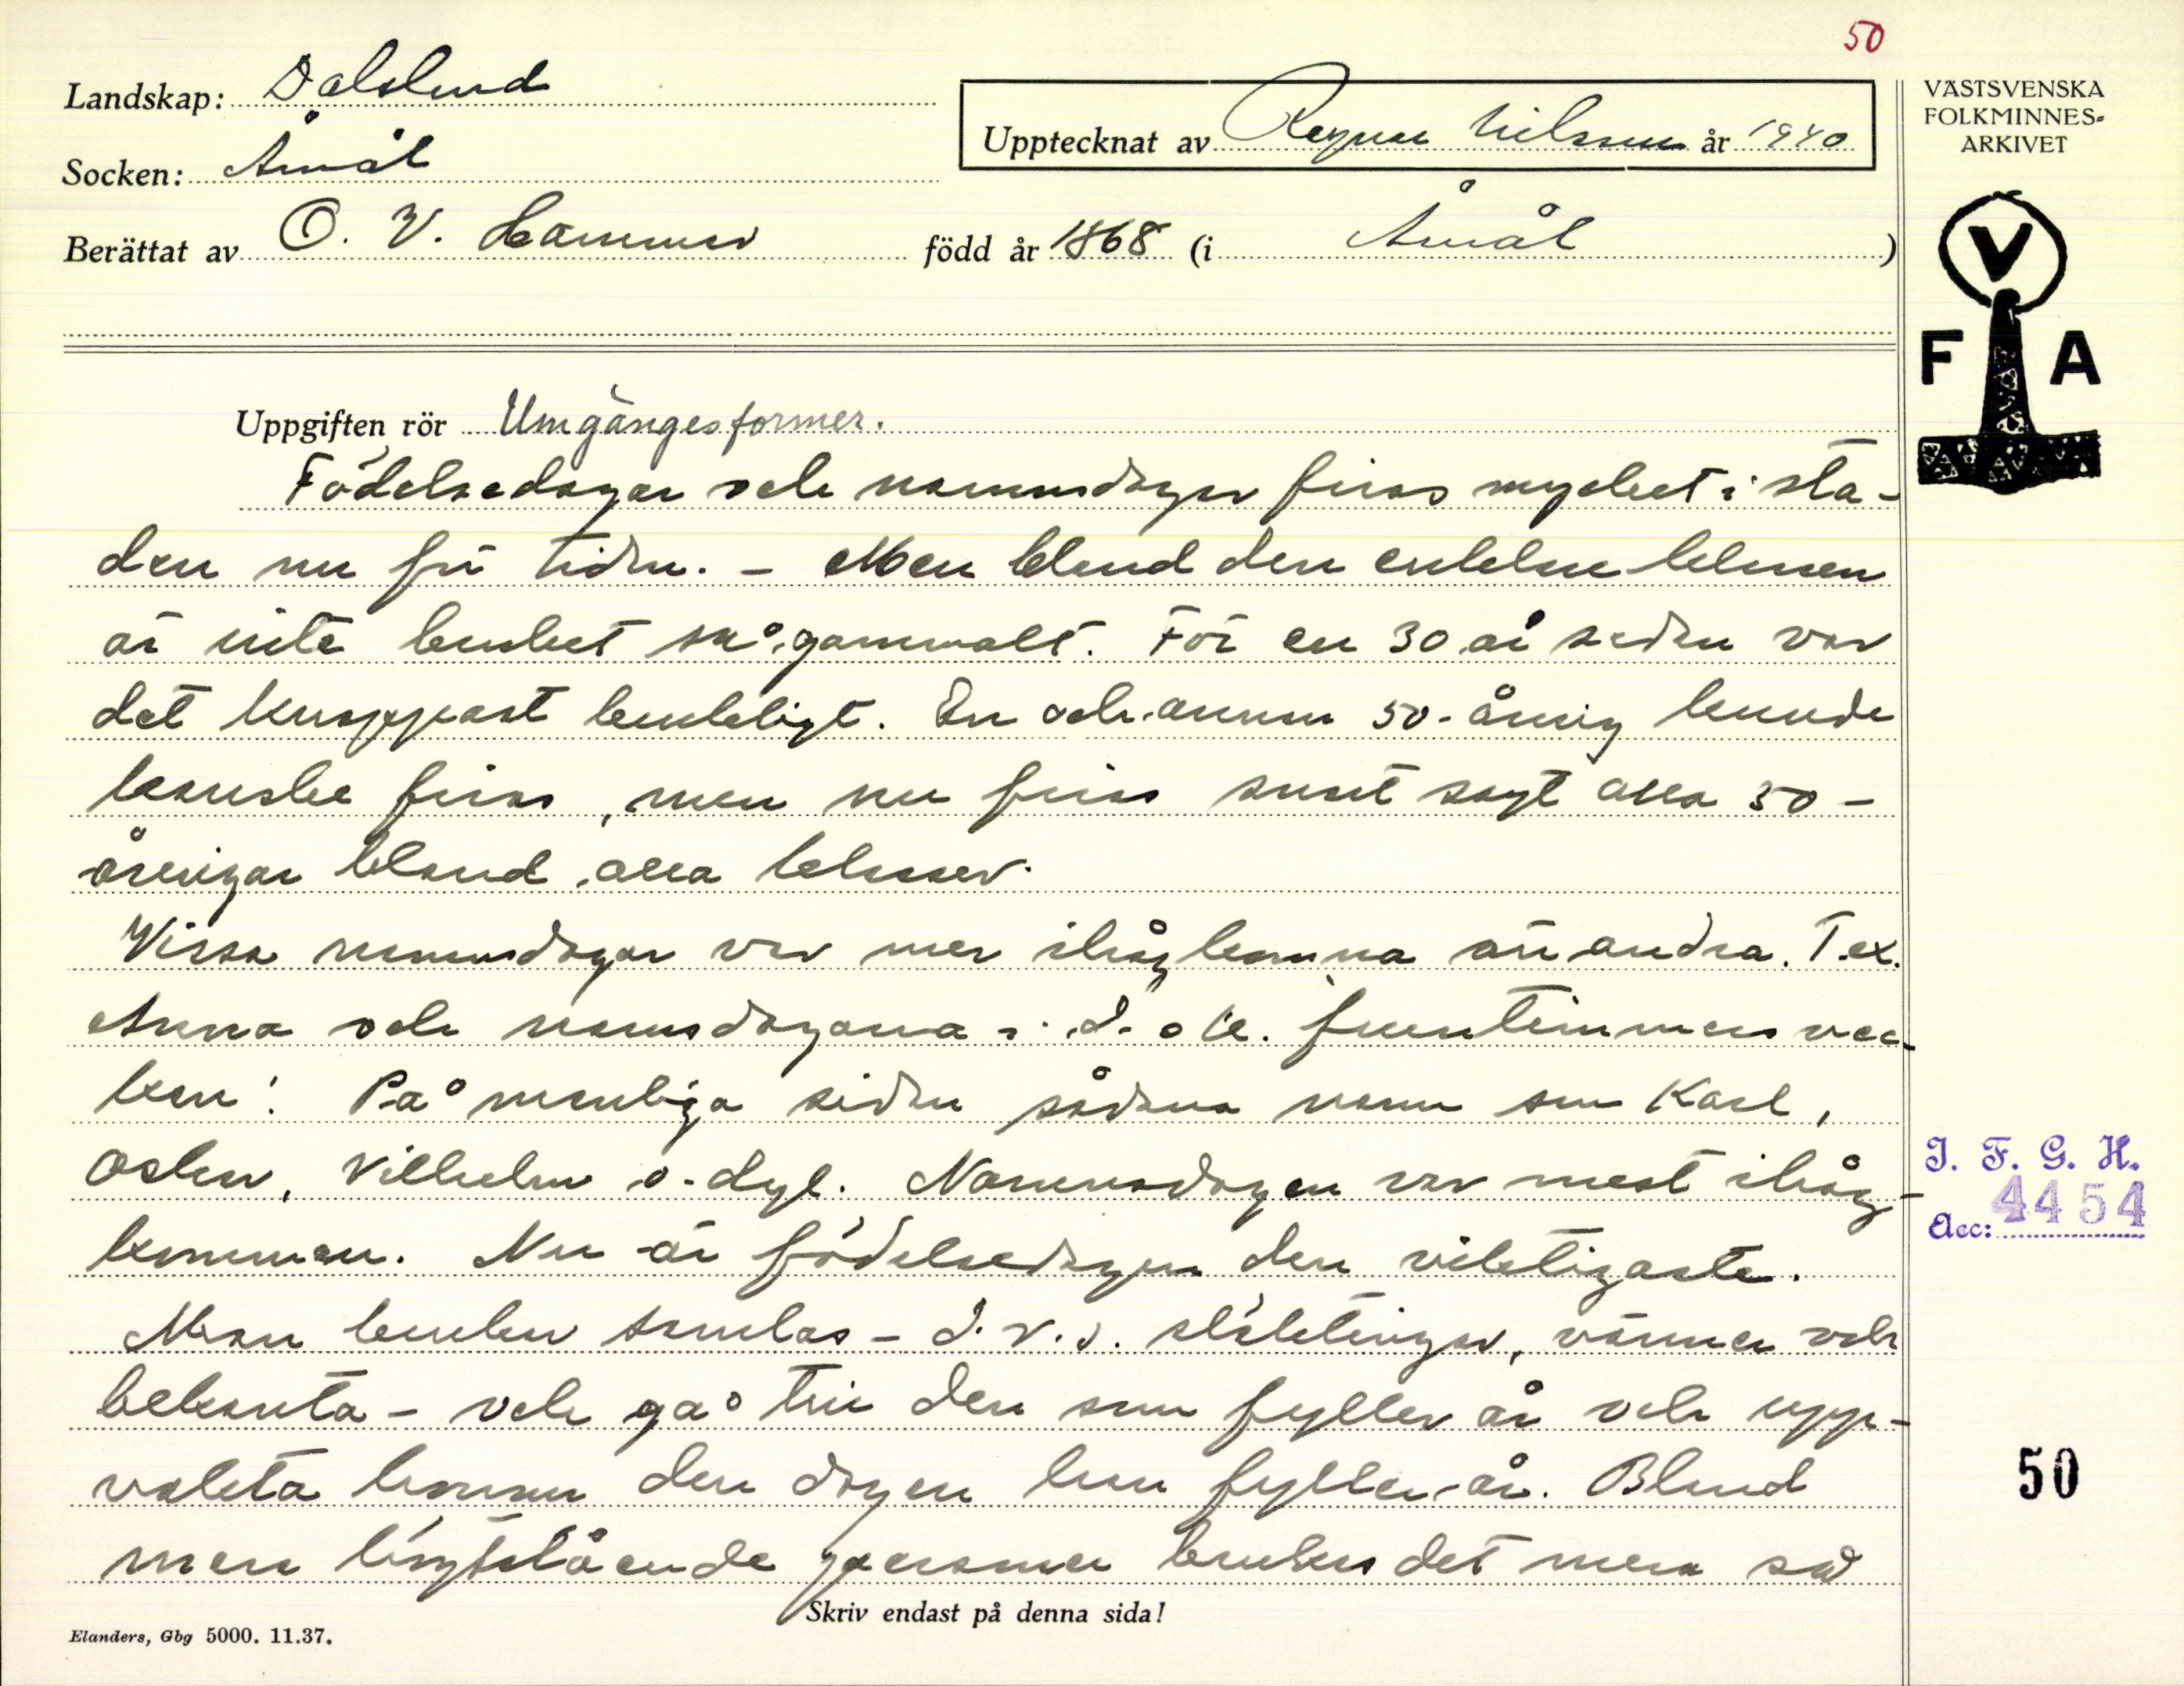 50
Landskap: Dalsland
Upptecknat av Ragnar Nilsson år 1940
VÄSTSVENSKA
FOLKMINNES-
ARKIVET
Socken: Åmål
Berättat av O. V. Hammar född år 1868 (i Åmål )
V
F A
Uppgiften rör Umgängesformer.
Födelsedagar och namnsdagar firas mycket i sta-
den nu för tiden. - Men bland den enklare klassen
är inte bruket så gammalt. För en 30 år sedan var
det knappast brukligt. En och annan 50-åring kunde
kanske firas, men nu firas snart sagt alla 50-
åringar bland alla klasser.
Vissa namnsdagar var mer ihågkomna än andra. T.ex.
Anna och namnsdagarna i d. s k. fruntimmersvec-
kan! På manliga sidan sådana namn som Karl,
Oskar, Vilhelm o. dyl. Namnsdagen var mest ihåg-
kommen. Nu är födelsedagen den viktigaste.
Man brukar samlas - d.v.s. släktingar, vänner och
bekanta - och gå till den som fyller år och upp-
vakta honom den dagen han fyller år. Bland
mera högtstående personer brukas det mera så
Skriv endast på denna sida!
Elanders, Gbg 5000. 11.37.
I. F. G. H.
Acc: 4454
50